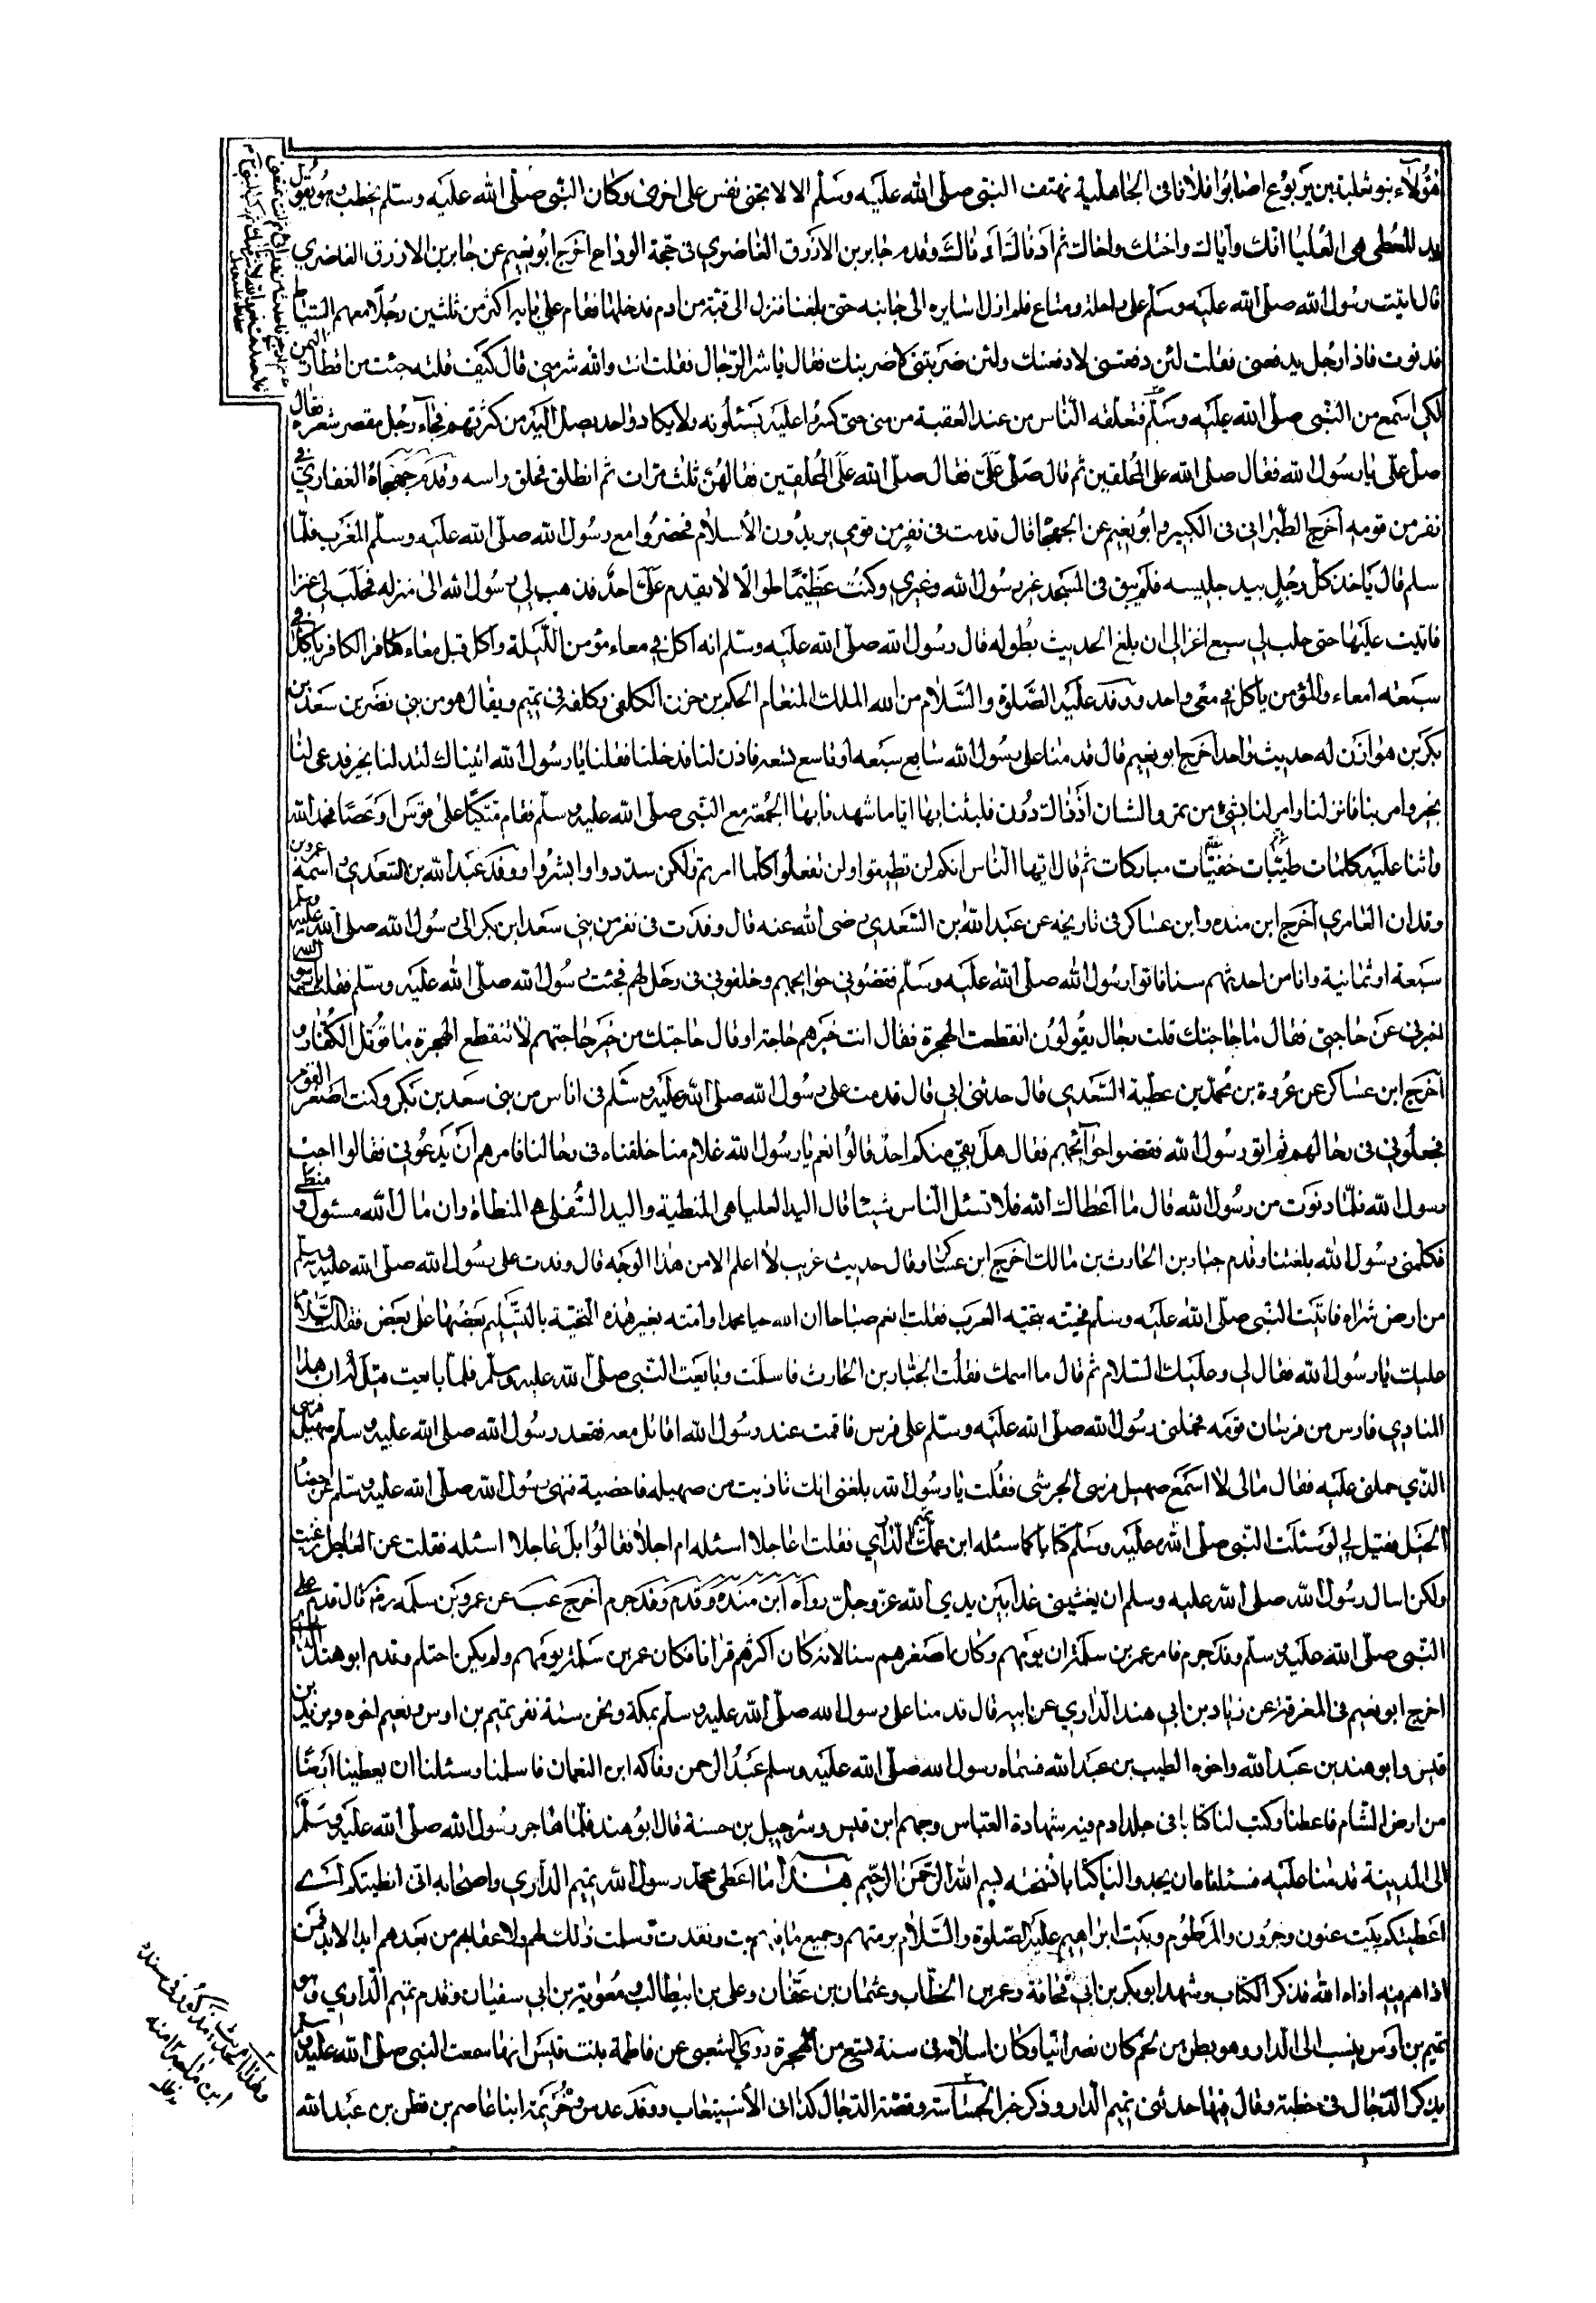 هؤلآء بنو ثعلبة بن يربوع اصابوا فلانا فى الجاهلية فهتف النبى صلّى الله عليه وسلم الا لا تجنى نفس على اخرى وكان النبى صلّى الله عليه وسلم يخطب وهو يقول
يد المعطى هى العليا امّك واباك واختك واخاك ثم ادناك ادناك وقدم جابر بن الازرق الغاضري فى حجة الوداع اخرج ابو نعيم عن جابر بن الازرق الغاضري
قال اتيت رسول الله صلّى الله عليه وسلم على راحلة ومتاع فلم ازل اسايره الى جانبه حتى بلغنا فنزل الى قبة من ادم فدخلها فقام على بابه اكثر من ثلثين رجلا معهم السياط
فدنوت فاذا رجل يدفعنى فقلت لئن دفعتنى لادفعنك ولئن ضربتنى لاضربنك فقال يا شر الرجال فقلت انت والله شر منى قال كيف قلت جئت من اقطار اليمن
لكى اسمع من النبى صلّى الله عليه وسلم فتعلقه الناس من عند العقبة من منى حتى كثروا عليه يسئلونه ولا يكاد واحد يصل اليه من كثرتهم فجآء رجل مقصر شعره فقال
صل علّى يا رسول الله فقال صلى الله على المحلقين ثم قال صلّ علّى فقال صلّى الله على المحلقين فقالهن ثلث مرات ثم انطلق فحلق راسه وقدم جهجاه الغفاري فى
نفر من قومه اخرج الطبرانى فى الكبير وابو نعيم عن الجهجا قال قدمت فى نفر من قومى يريدون الاسلام فحضروا مع رسول الله صلّى الله عليه وسلم المغرب فلمّا
سلم قال ياخذ كل رجل بيد جليسه فلم يبق فى المسجد غير رسول الله وغيري وكنت عظيمًا طوالا لا يقدم علىّ احدٌ فذهب بى رسول الله الى منزله فحلب لى عنزا
فاتيت عليها حتى حلب لى سبع اعنز الى ان بلغ الحديث بطوله قال رسول الله صلّى الله عليه وسلم انه اكل فى معاء مؤمن الليلة واكل قبل معاء كافر الكافر ياكل فى
سبعة امعاء والمؤمن ياكل فى معى واحد ووفد عليه الصّلوة والسّلام من الله الملك المنعام الحكم بن حزن الكلفى وكلفه فى تميم ويقال هو من بنى نصر بن سعد بن
بكر بن هوازن له حديث واحد اخرج ابو نعيم قال قدمنا على رسول الله سابع سبعة او تاسع تسعة فاذن لنا فدخلنا فقلنا يا رسول الله اتيناك لتدعو لنا بخير فدعى لنا
بخير وامر بنا فانزلنا وامر لنا بشئ من تمر والشان اذ ذاك دون فلبثنا بها اياما شهدنا بها الجمعة مع النبى صلّى الله عليه وسلم فقام متكيًا على قوس او عصًا فحمد الله
واثنا عليه كلمات طيّبات خفيفات مباركات ثم قال ايها الناس انكم لن تطيقوا ولن تفعلوا كلما امرتم ولكن سددوا وابشروا ووفد عبد الله بن السّعدي واسمه عمرو بن
وقدان العامري اخرج ابن منده وابن عساكر فى تاريخه عن عبد الله بن السّعدي رضى الله عنه قال وفدت فى نفر من بنى سعد ابن بكر الى رسول الله صلّى الله عليه وسلم
سبعة او ثمانية وانا من احدثهم سنا فاتوا رسول الله صلّى الله عليه وسلم فقضوا حوايجهم وخلفونى فى رحل لهم فجئت رسول الله صلّى الله عليه وسلم فقلت يا رسول الله
اخبرنى عن حاجتى فقال ما حاجتك قلت رجال يقولون انقطعت الهجرة فقال انت خيرهم حاجة او قال حاجتك من خير حاجتهم لا تنقطع الهجرة ما قوتل الكفار و
اخرج ابن عساكر عن عروة بن محمد بن عطية السّعدي قال حدثنى ابى قال قدمت على رسول الله صلّى الله عليه وسلم فى اناس من بنى سعد بن بكر وكنت اصغر القوم
فجعلونى فى رحالهم ثم اتو رسول الله فقضوا حوآئجهم فقال هل بقى منكم احد قالوا نعم يا رسول الله غلام منا خلفناه فى رحالنا فامرهم ان يدعونى فقالوا اجب
رسول الله فلمّا دنوت من رسول الله قال ما اعطاك الله فلا تسئل الناس شيئا قال اليد العليا هى المنطية واليد السّفلى هى المنطاة وان مال الله مسئول و منطى
فكلمنى رسول الله بلغتنا وقدم جبار بن الحارث بن مالك اخرج ابن عساكر وقال حديث غريب لا اعلم الا من هذا الوجه قال وفدت على رسول الله صلّى الله عليه وسلم
من ارض شراه فاتيت النبى صلّى الله عليه وسلم فحيّته بتحية العرب فقلت انعم صباحا ان الله حيا محمدا وامته بغير هذه التحية بالتسليم بعضها على بعض فقلت السّلام
عليك يا رسول الله فقال لى وعليك السّلام ثم قال ما اسمك فقلت الجبار بن الحارث فاسلمت وبايعت النبى صلّى الله عليه وسلم فلمّا بايعت قيل له ان هذا
المنادي فارس من فرسان قومه فحملنى رسول الله صلّى الله عليه وسلم على فرس فاقمت عند رسول الله اقاتل معه ففقد رسول الله صلى الله عليه وسلم صهيل فرسى
الذي حملنى عليه فقال مالى لا اسمع صهيل فرس الحرشى فقلت يا رسول الله بلغنى انك تاذيت من صهيله فاخصيه فنهى رسول الله صلى الله عليه وسلم عن خصا
الخيل فقيل لى لو سئلت النبى صلّى الله عليه وسلم كتابا كما سئله ابن عمك تميم الدّاري فقلت اعاجلا اسئله ام اجلا فقالوا بل عاجلا اسئله فقلت عن العاجل رغبت
ولكن اسال رسول الله صلى الله عليه وسلم ان يغيثنى غدا بين يدي الله عز وجل رواه ابن منده وقدم وفد جرم اخرج عب عن عمرو بن سلمه رض قال قدم على
النبى صلّى الله عليه وسلم وفد جرم فامر عمر بن سلمة ان يؤمهم وكان اصغرهم سنا لانه كان اكثرهم قرانا فكان عمر بن سلمة يؤمهم ولم يكن احتلم وقدم ابو هند الداري
اخرج ابو نعيم فى المعرفة عن زياد بن ابى هند الدّاري عن ابيه قال قدمنا على رسول الله صلّى الله عليه وسلم بمكة ونحن ستة نفر تميم بن اوس ونعيم اخوه ويزيد بن
قيس وابو هند بن عبد الله واخوه الطيب بن عبد الله فسماه رسول الله صلّى الله عليه وسلم عبد الرحمن وفاكه ابن النعمان فاسلمنا وسئلنا ان يعطينا ارضًا
من ارض الشام فاعطنا وكتب لنا كتابا فى جلد ادم فيه شهادة العباس وجهم ابن قيس وشرحبيل بن حسنة قال ابو هند فلمّا هاجر رسول الله صلّى الله عليه وسلم
الى المدينة قدمنا عليه فسئلناه ان يجدد لنا كتابا نسخته بسم الله الرّحمن الرّحيم هذا ما اعطى محمد رسول الله تميم الداري واصحابه انى انطيتكم
اعطيتكم بيت عنون وجرون والمرطوم وبيت ابراهيم عليه الصّلوة والسّلام برمتهم وجميع ما فيهم بت ونفدت وسلمت ذلك لهم ولاعقابهم من بعدهم ابد الابد فمن
اذاهم فيه اذاه الله فذكر الكتاب وشهد ابو بكر بن ابى قحافة وعمر بن الخطّاب وعثمان بن عفان وعلى بن ابيطالب ومعوية بن ابى سفيان وقدم تميم الدّاري وهو
تميم بن اوس ينسب الى الدار وهو بطن من لخم كان نصرانيا وكان اسلامه فى سنة تسع من الهجرة روى الشعبى عن فاطمة بنت قيس انها سمعت النبى صلى الله عليه وسلم
يذكر الدّجال فى خطبته وقال فيها حدثنى تميم الدّار وذكر خبر الجسّاسة وقصّة الدّجال كذا فى الاستيعاب ووفد عدس وخزيمة ابنا عاصم بن قطن بن عبد الله